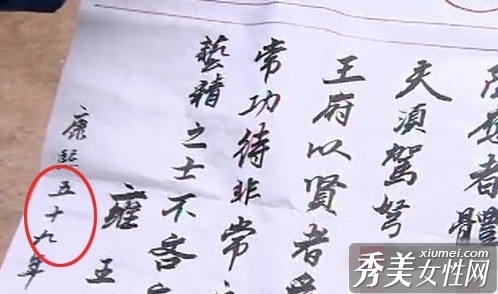 者體
天須駕弩
王府以賢者
常功待非常
藝精之士不吝
雍王
康熙五十九年
xiumei.com
秀美女性网